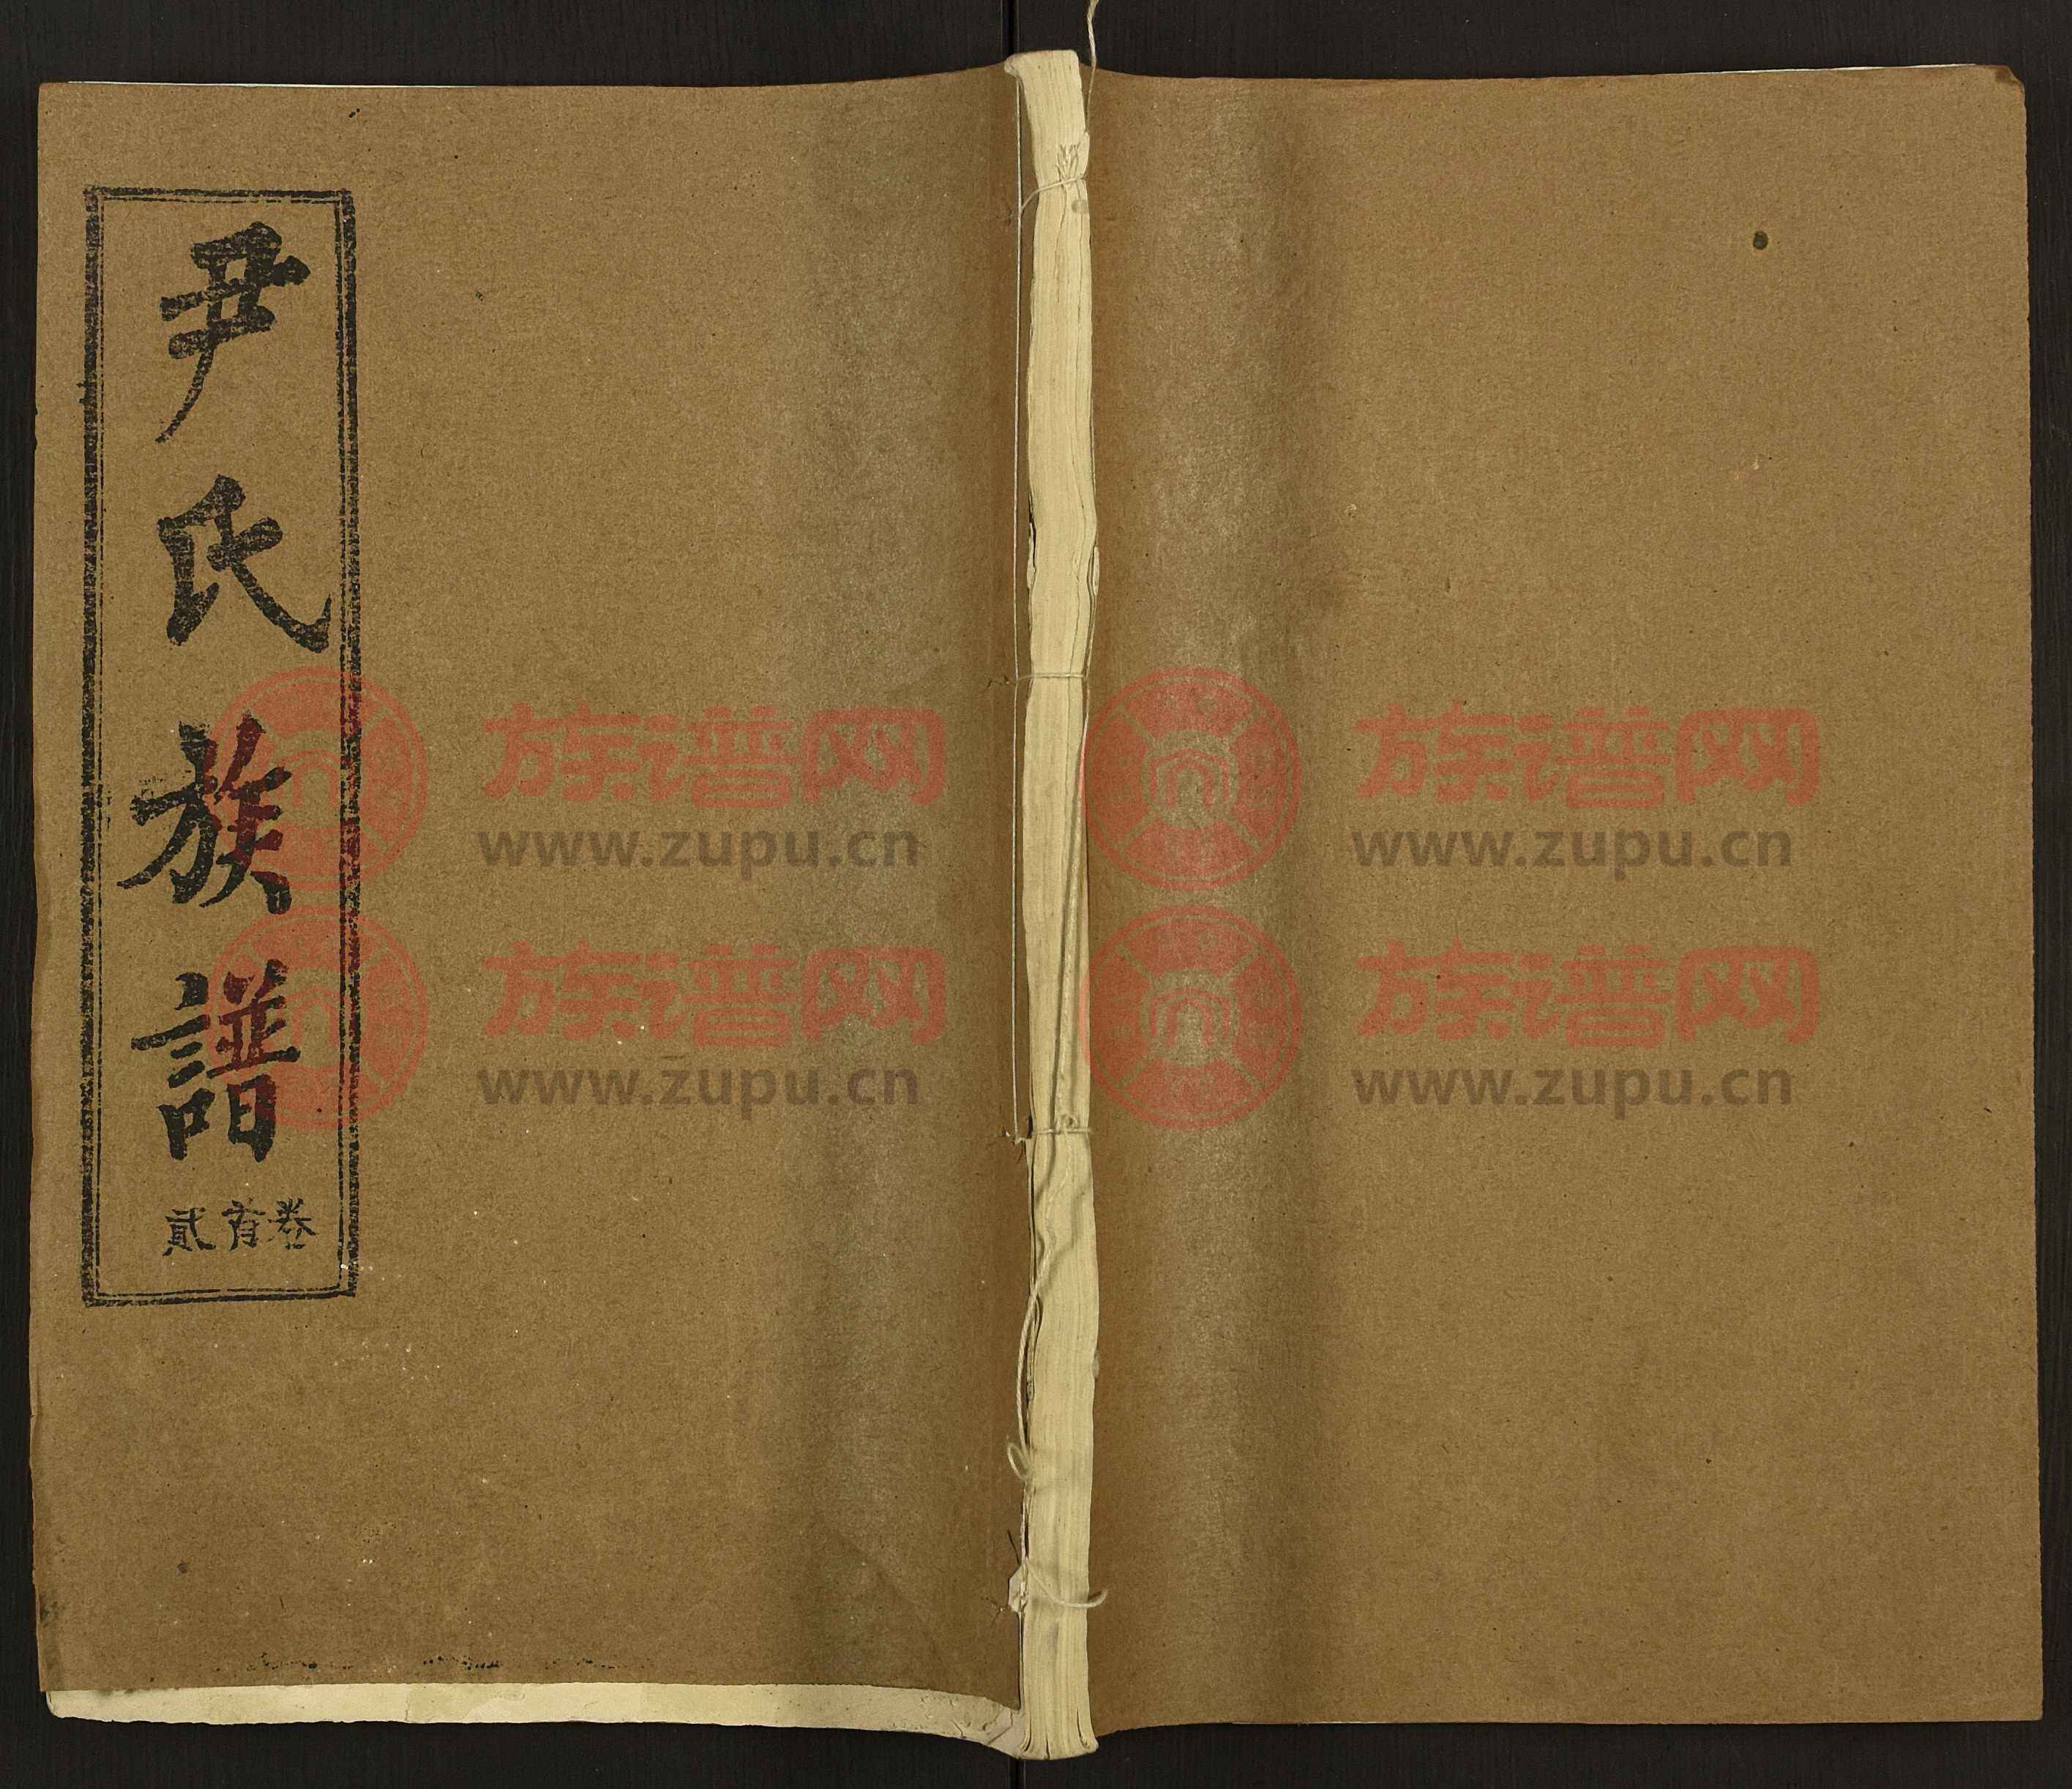 尹氏族譜
卷首貳
族谱网
www.zupu.cn
族谱网
www.zupu.cn
族谱网
www.zupu.cn
族谱网
www.zupu.cn